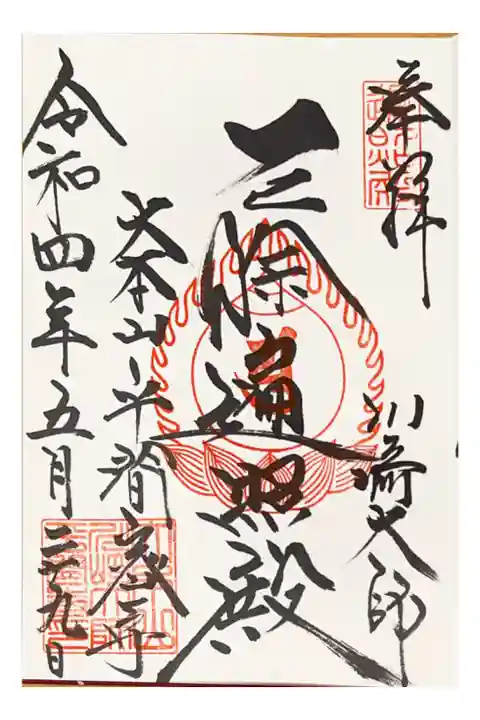 奉拝
川崎大師
遍照殿
大本山平間寺
令和四年五月二十九日